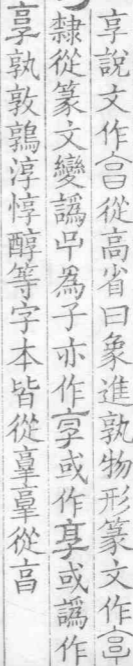 享說文作亯從高省曰象進孰物形篆文作亯
隸從篆文變譌𠮛為子亦作㝊或作享或譌作
享孰敦鶉淳惇醇等字本皆從𦎫𦎫從亯